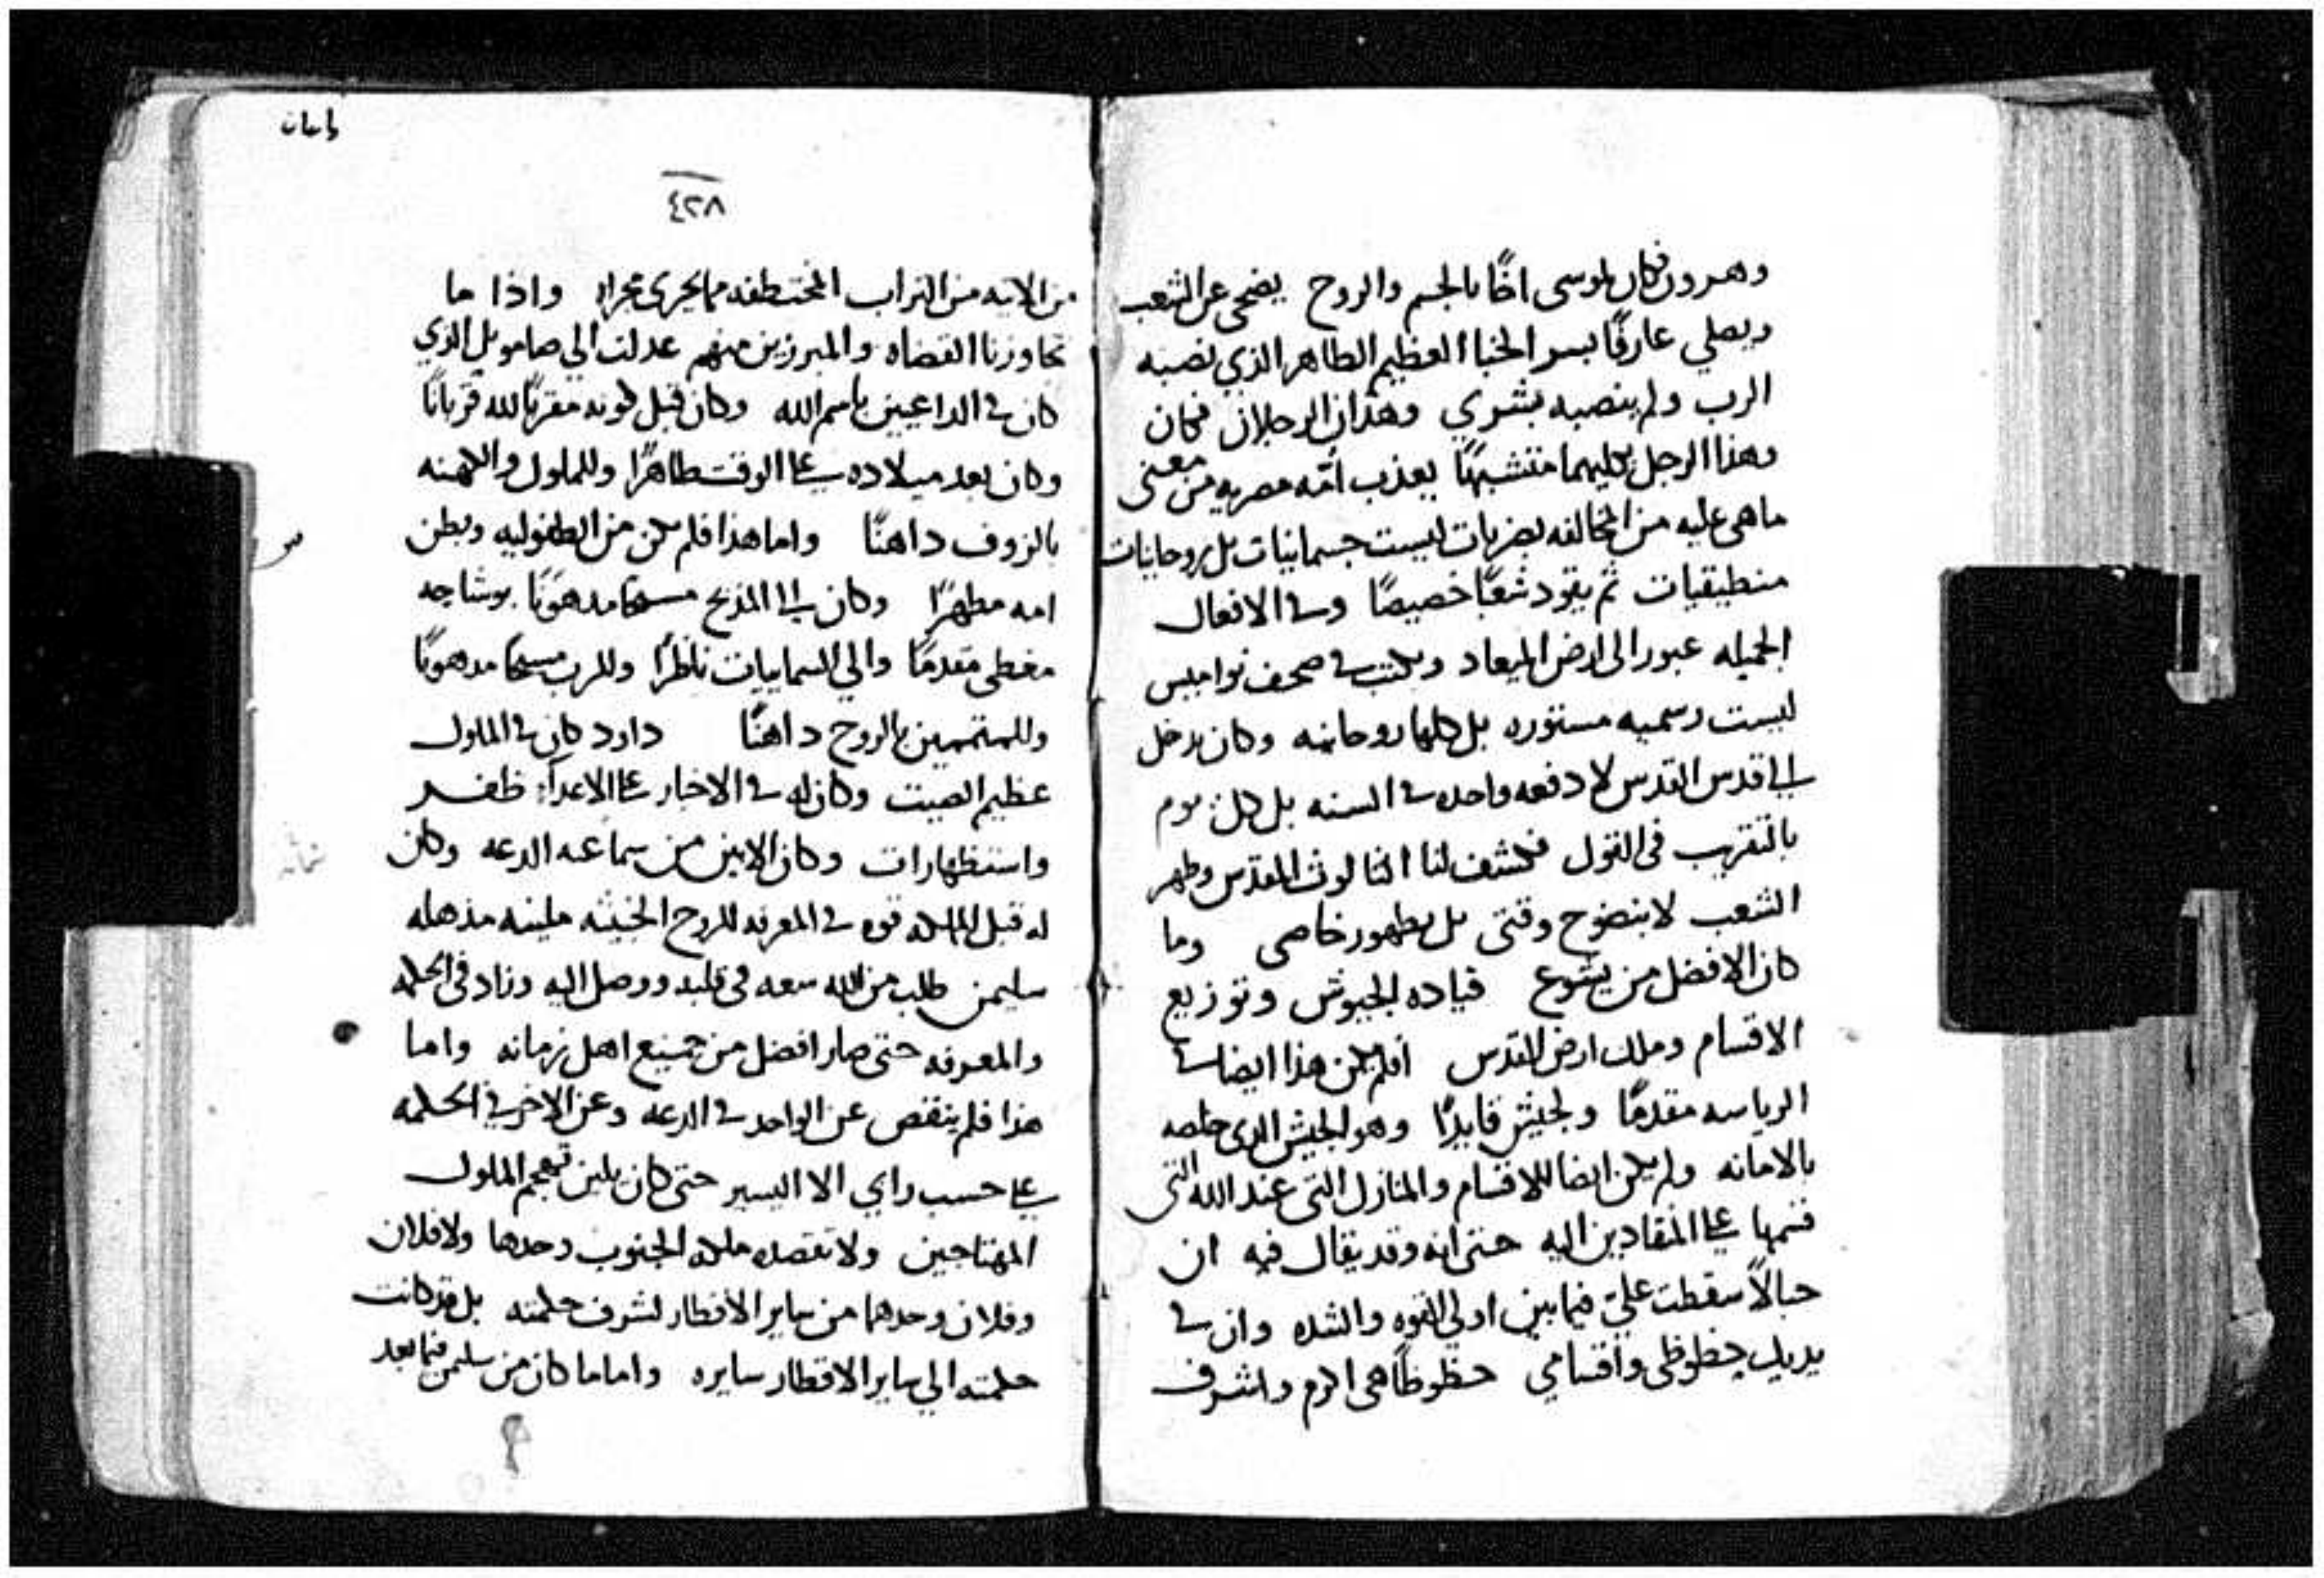 وهرون فكان لموسى اخًا بالجسم والروح يضحى عن الشعب
ويصلي عارفًا بسر الخبا العظيم الطاهر الذي نصبه
الرب ولم ينصبه بشري وهذان الرجلان فكان
وهذا الرجل بكليهما متشبهًا يعذب أمّه مصريه من معنى
ما هي عليه من المخالفه بضربات ليست جسمانيات بل روحانيات
منطيقيات ثم يقود شعبًا خصيصًا وفي الافعال
الجميله عبور الى ارض الميعاد ويكتب في صحف نواميس
ليست رسميه مستوره بل كلها روحانيه وكان يدخل
الى قدس القدس لا دفعه واحده في السنه بل كل يوم
بالتقريب في القول فكشف لنا الثالوث المقدس وطهر
الشعب لا بنضوح وقتي بل بطهور خاصي وما
كان الافضل من يشوع قياده الجيوش وتوزيع
الاقسام وملك ارض المقدس أفلم يكن هذا ايضا في
الرياسه مقدمًا ولجيش قايدًا وهو الجيش الذي خلصه
بالامانه ولم يكن ايضا للاقسام والمنازل التي عند الله التي
قسمها على المنقادين اليه حتى انه وقد يقال فيه ان
حبالاً سقطت عليّ فيما بين اولي القوه والشده وان في
يديك حظوظي واقسامي حظوظًا هي اكرم واشرف
٤٢٨
من الاتيه من التراب المختطفه مما يجري مجراه واذا ما
تجاوزنا القضاه والمبرزين منهم عدلت الي صامويل الذي
كان في الداعيين باسم الله وكان قبل كونه مقربًا لله قربانًا
وكان بعد ميلاده على الوقت طاهرًا وللملوك والكهنه
بالزوف داهنًا واما هذا فلم يكن من الطفوليه وبطن
امه مطهرًا وكان الى المذبح مسحًا مدهونًا بوشاحه
مغطى مقدمًا والي السماييات ناظرًا وللرب مسحًا مدهونًا
وللمتتممين بالروح داهنًا داود كان في الملوك
عظيم الصيت وكان له في الاخبار على الاعدآ ظفر
واستظهارات وكان الابين من سماعه الدعه وكان
له قبل المملكه قوه في المعرفه للروح الخبيثه ملينه مذهله
سليمن طلب من الله سعه في قلبه ووصل اليه وزاد في الحكمه
والمعرفه حتى صار افضل من جميع اهل زمانه واما
هذا فلم ينقص عن الواحد في الدعه وعن الاخر في الحكمه
على حسب راي الا اليسير حتى كان يلين تهجم الملوك
المهتاجين ولا تقصده ملكه الجنوب وحدها ولا فلان
وفلان وحدهما من ساير الاقطار لشرف حكمته بل قد كانت
حكمته الي ساير الاقطار سايره واما ما كان من سليمن فيما بعد